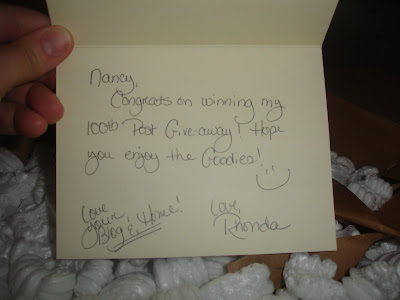 Nancy,
Congrats on winning my
100th Post Give-away! Hope
you enjoy the Goodies!
Love
your
Blog & Home!
Love,
Rhonda